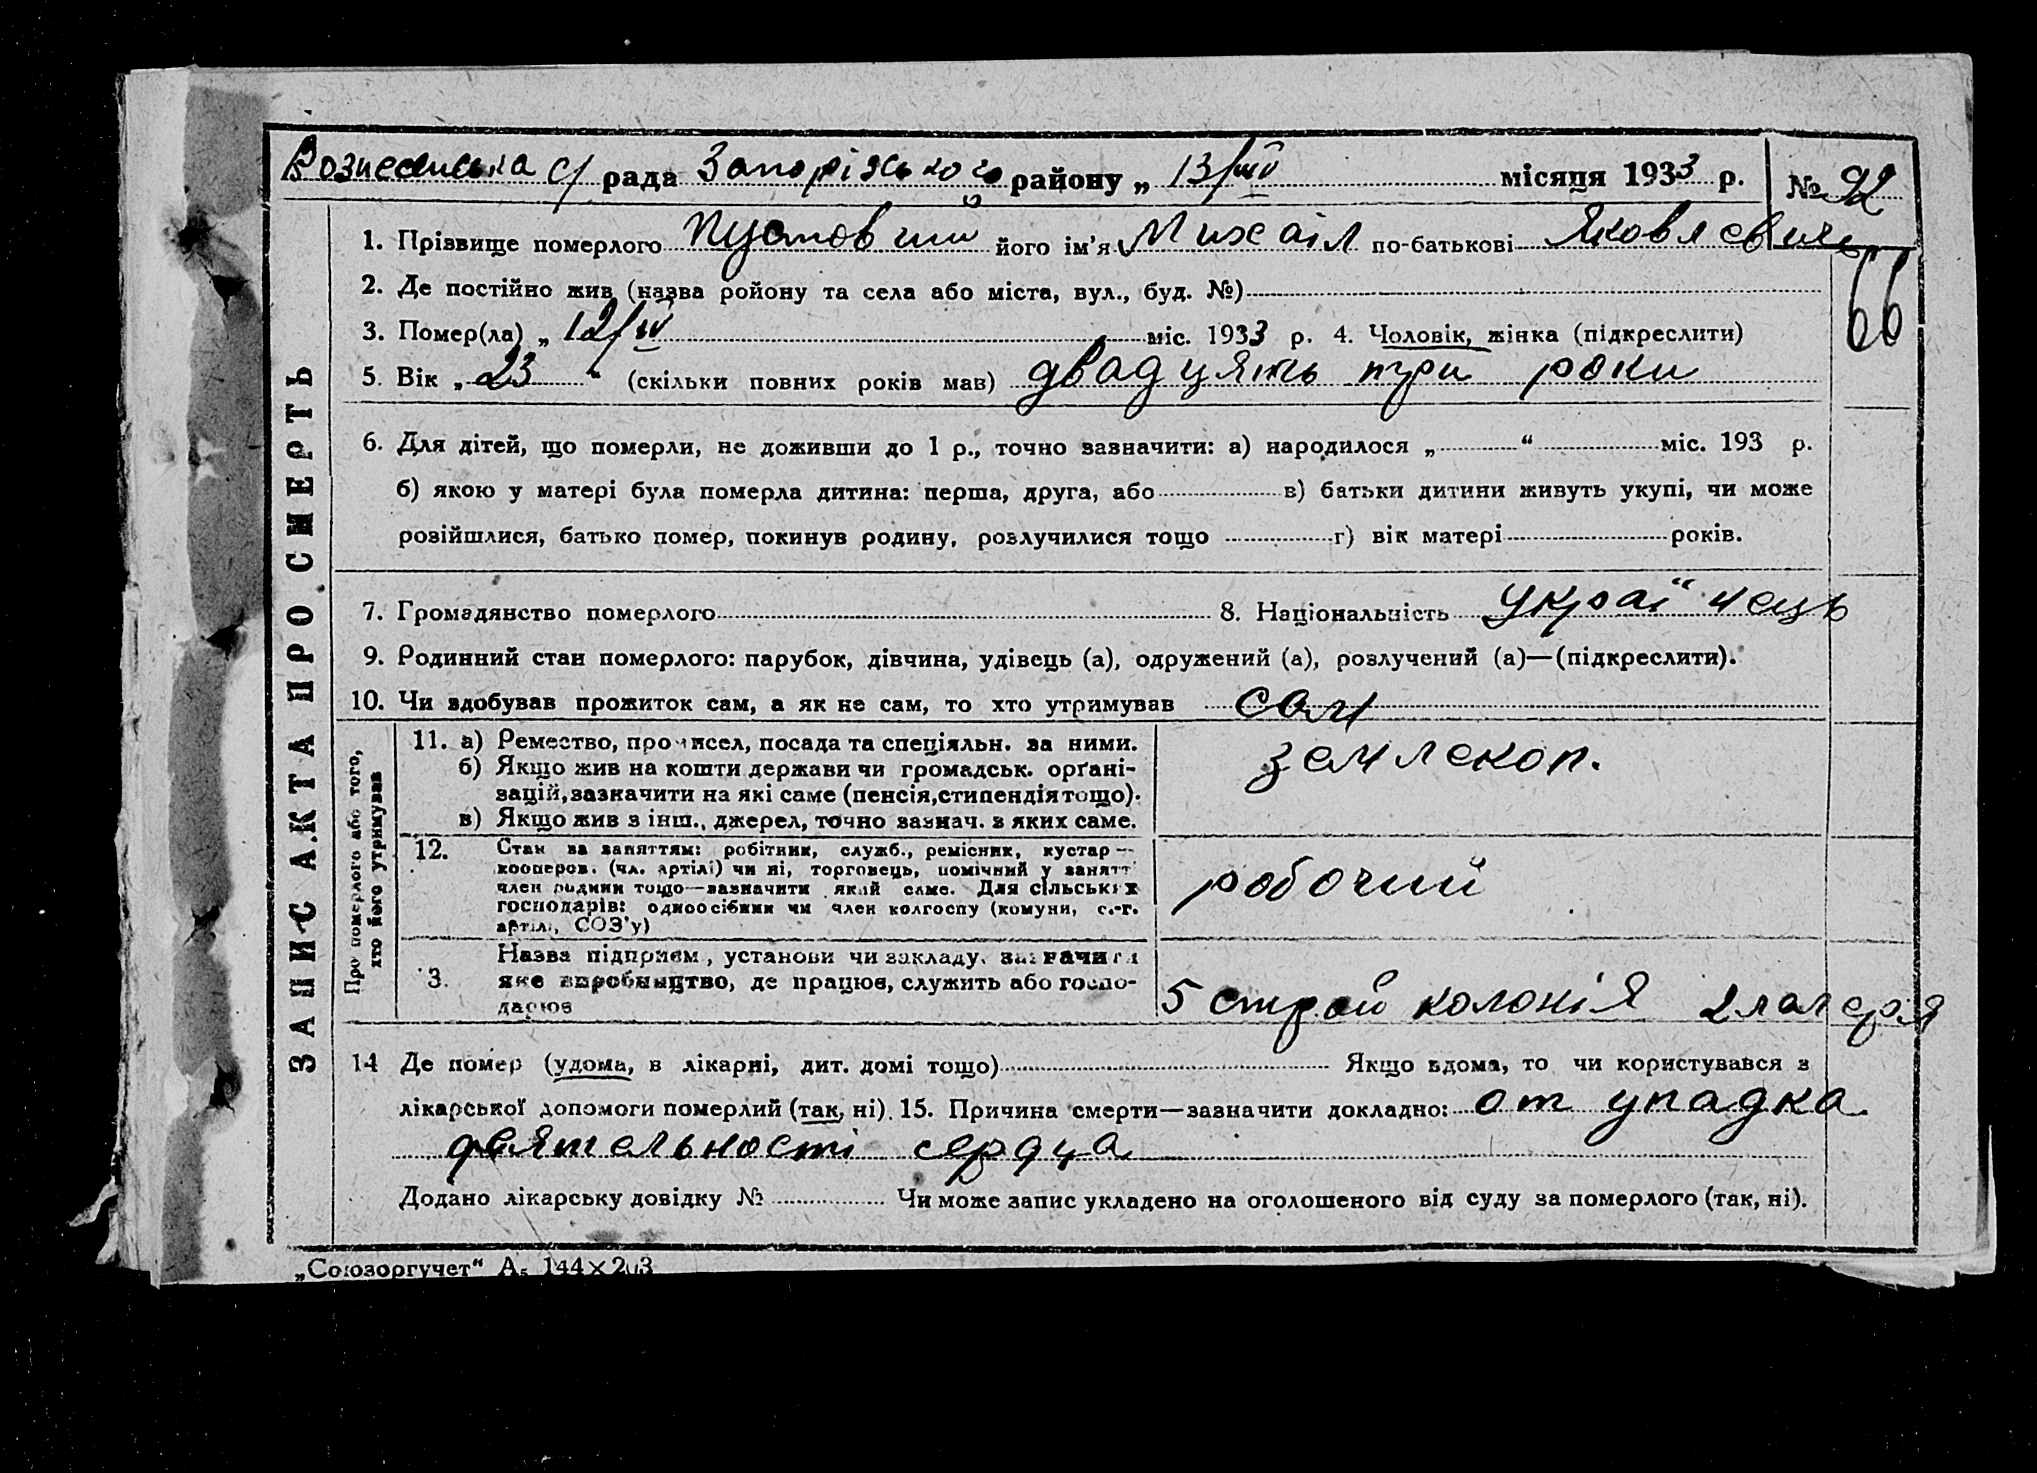 Вознесенська с/ рада Запорізького району „ 13/VIII місяця 1933 р. № 92
1. Прізвище померлого його ім'я Михаіл по-батькові Яковлевичь
66
2. Де постійно жив (назва ройону та села або міста, вул., буд. №)
3. Помер(ла) „ 12/ міс. 1933 р. 4. Чоловік, жінка (підкреслити)
5. Вік „ 23 “ (скільки повних років мав) двадцять три роки
6. Для дітей, що померли, не доживши до 1 р., точно зазначити: а) народилося „ “ міс. 193 р.
б) якою у матері була померла дитина: перша, друга, або в) батьки дитини живуть укупі, чи може
розійшлися, батько помер, покинув родину, розлучилися тощо г) вік матері років.
7. Громадянство померлого 8. Національність Украінець
9. Родинний стан померлого: парубок, дівчина, удівець (а), одружений (а), розлучений (а)—(підкреслити).
10. Чи здобував прожиток сам, а як не сам, то хто утримував сам
ЗАПИС АКТА ПРО СМЕРТЬ
Про померлого або того,
хто його утримував
11. а) Ремество, промисел, посада та спеціяльн. за ними.
б) Якщо жив на кошти держави чи громадськ. орґані-
зацій, зазначити на які саме (пенсія, стипендія тощо).
в) Якщо жив з інш., джерел, точно зазнач. з яких саме.
землекоп.
12. Стан за заняттям: робітник, служб., ремісник, кустар—
кооперов. (чл. артілі) чи ні, торговець, помічний у занятті
член родини тощо—зазначити який саме. Для сільських
господарів: одноосібник чи член колгоспу (комуни, с.-г.
артілі, СОЗ'у)
робочий
13. Назва підприєм, установи чи закладу. зазначити
яке виробництво, де працює, служить або госпо-
дарює
5 строй колонія 2 лагеря
14 Де помер (удома, в лікарні, дит. домі тощо) Якщо вдома, то чи користувався з
лікарської допомоги померлий (так, ні). 15. Причина смерти—зазначити докладно: от упадка
деятельності сердца
Додано лікарську довідку № Чи може запис укладено на оголошеного від суду за померлого (так, ні).
„Союзоргучет“ А₅ 144×203